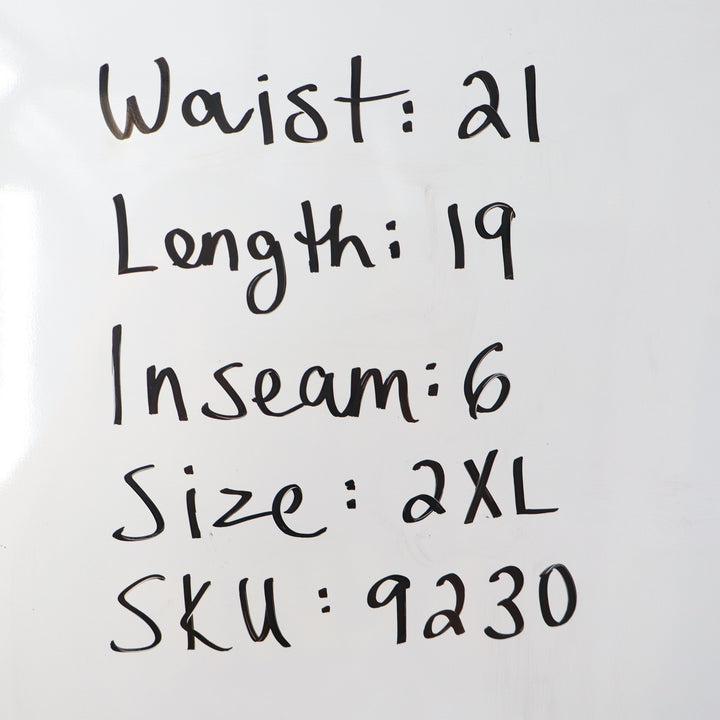 Waist: 21
Length: 19
Inseam: 6
Size: 2XL
SKU: 9230